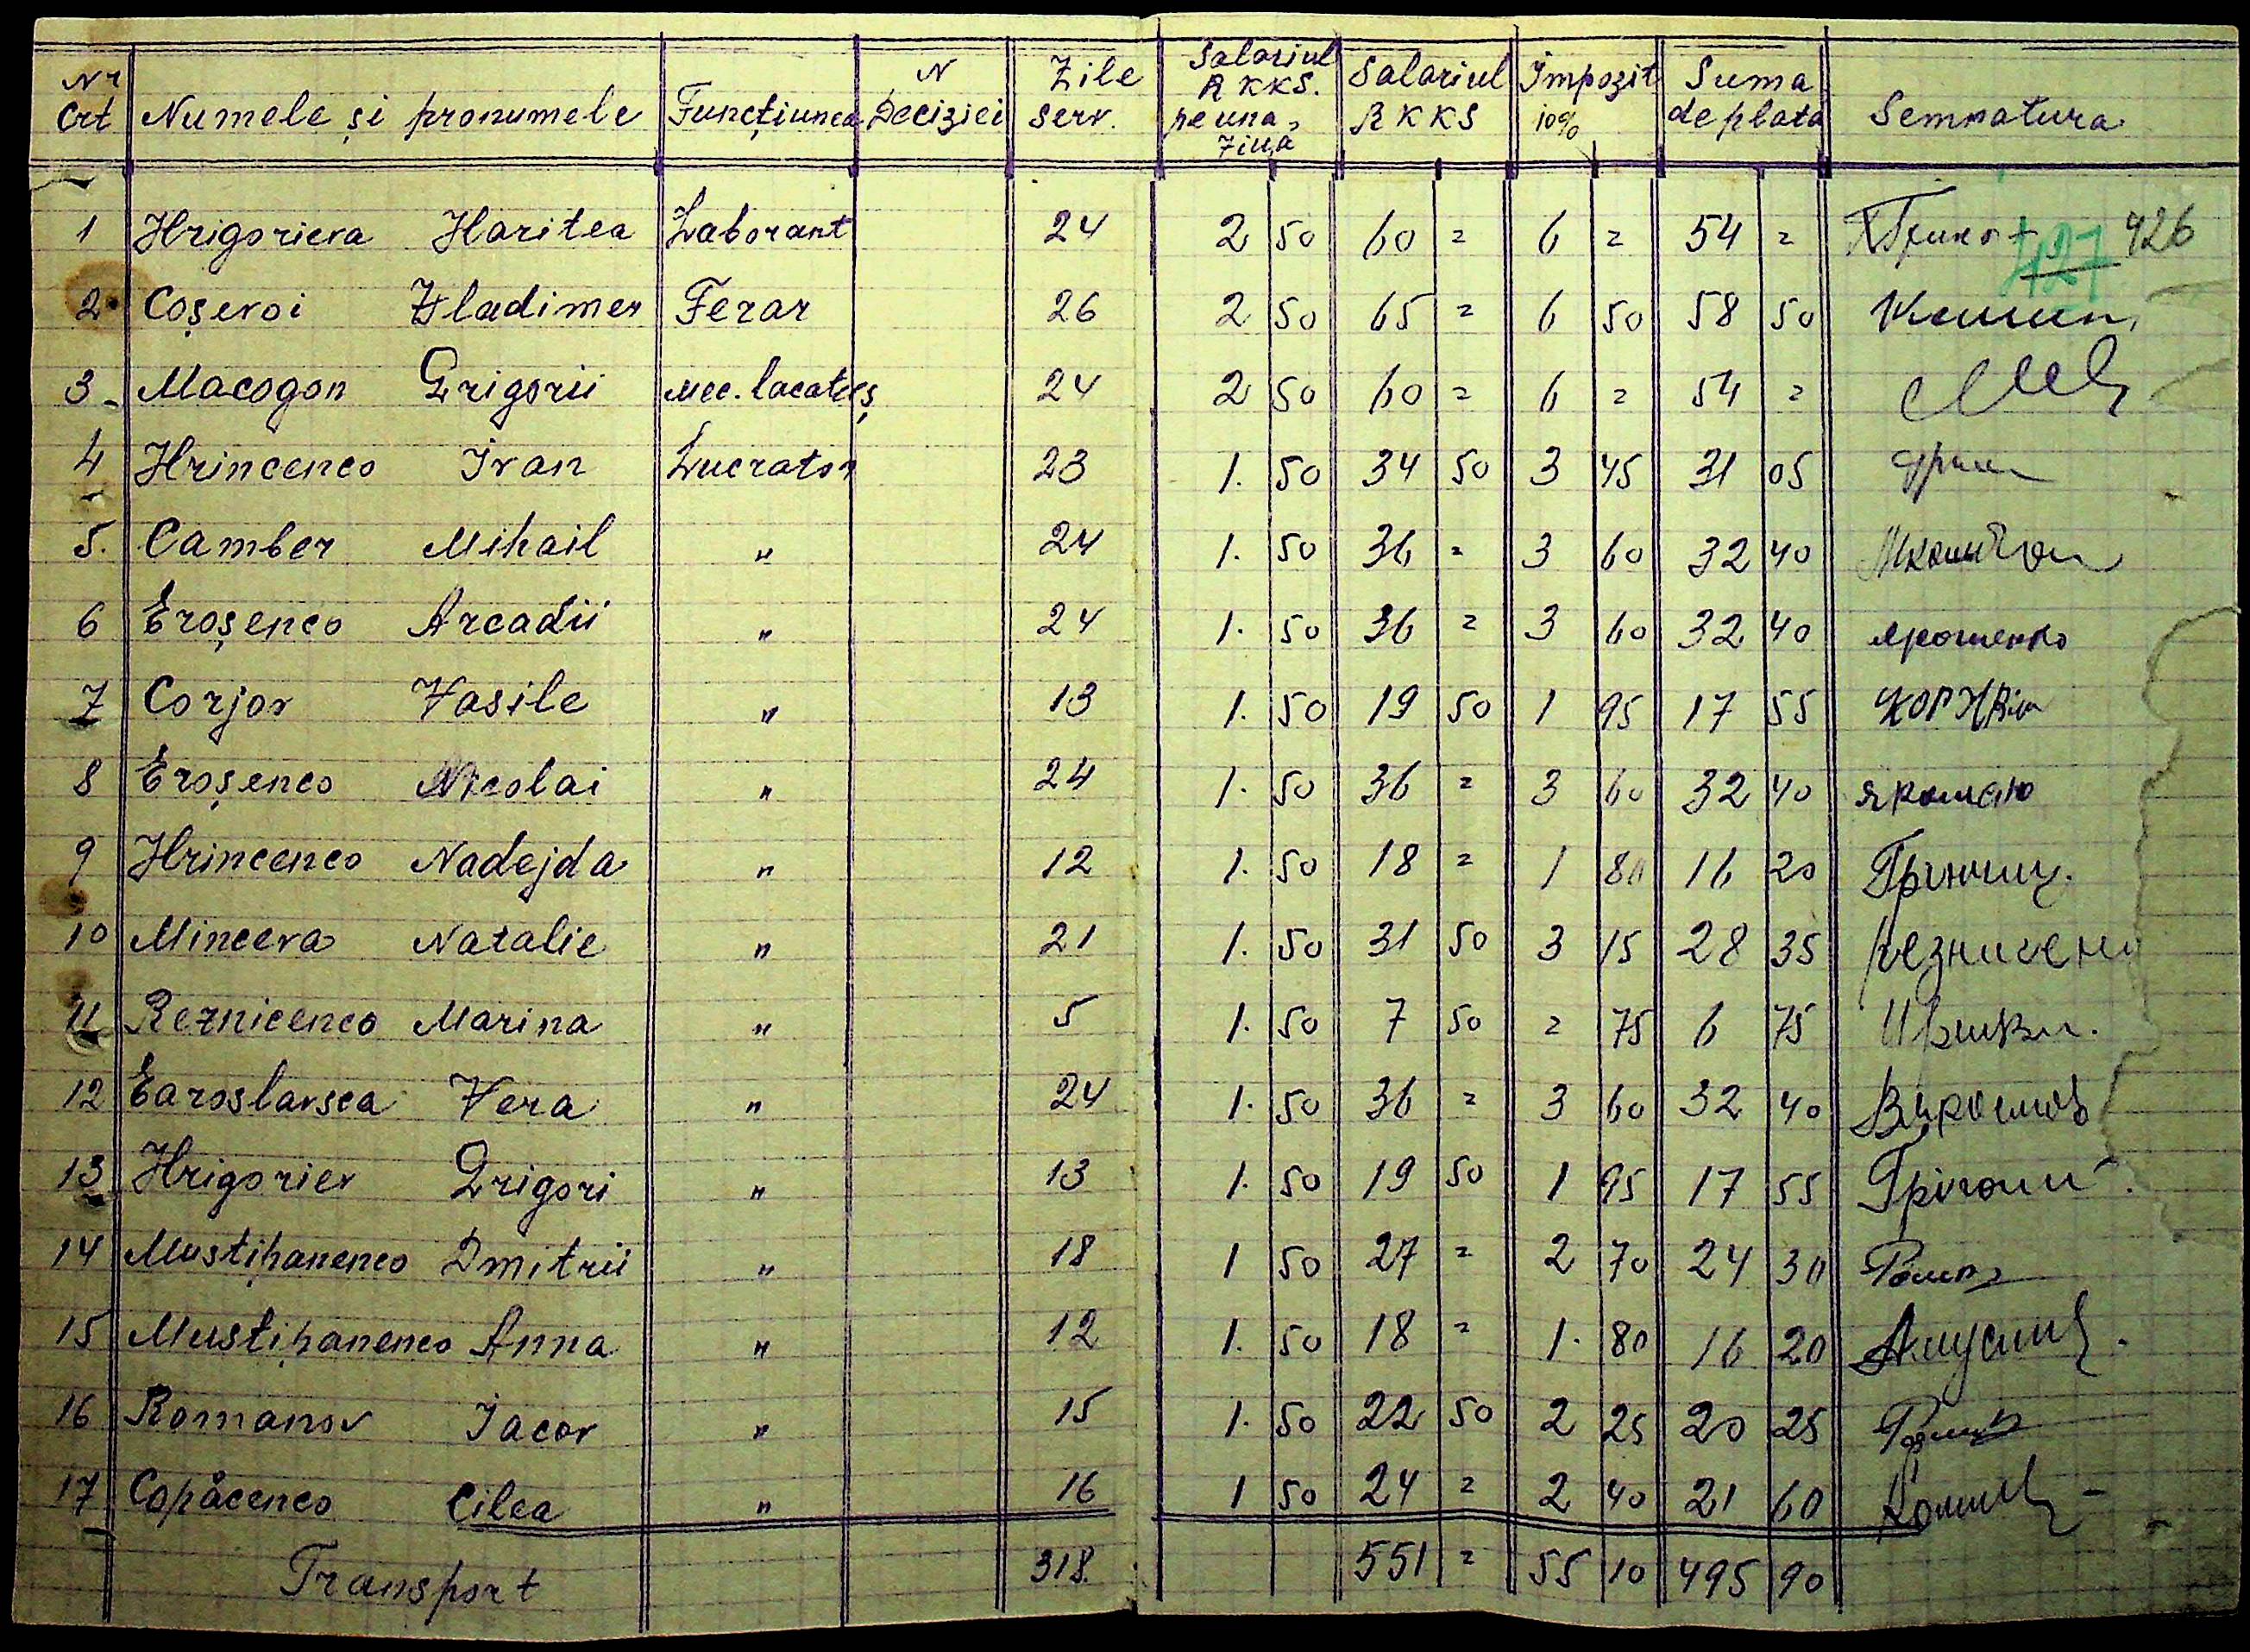 Nr Crt Numele și pronumele Funcțiunea N Deciziei Zile serv. Salariul RKKS. pe una Ziua Salariul RKKS Impozit 10% Suma de plata Semnatura
426
427
1 Hrigorieva Haritea Laborant 24 2 50 60 = 6 = 54 =
2 Coșevoi Vladimer Ferar 26 2 50 65 = 6 50 58 50
3 Macogon Grigorii Mec. lacatuș 24 2 50 60 = 6 = 54 =
4 Hrincenco Ivan Lucrator 23 1. 50 34 50 3 45 31 05
5. Camber Mihail " 24 1. 50 36 = 3 60 32 40
6 Eroșenco Arcadii " 24 1. 50 36 = 3 60 32 40 ярошенко
7 Corjov Vasile " 13 1. 50 19 50 1 95 17 55
8 Eroșenco Nicolai " 24 1. 50 36 = 3 60 32 40
9 Hrincenco Nadejda " 12 1. 50 18 = 1 80 16 20
10 Minceva Natalie " 21 1. 50 31 50 3 15 28 35
11 Reznicenco Marina " 5 1. 50 7 50 = 75 6 75
12 Earoslavsca Vera " 24 1. 50 36 = 3 60 32 40
13 Hrigoriev Grigori " 13 1. 50 19 50 1 95 17 55
14 Mustițanenco Dmitrii " 18 1 50 27 = 2 70 24 30
15 Mustițanenco Anna " 12 1. 50 18 = 1. 80 16 20
16 Romanov Iacov " 15 1. 50 22 50 2 25 20 25
17 Copăcenco Cilea " 16 1 50 24 = 2 40 21 60
Transport 318. 551 = 55 10 495 90